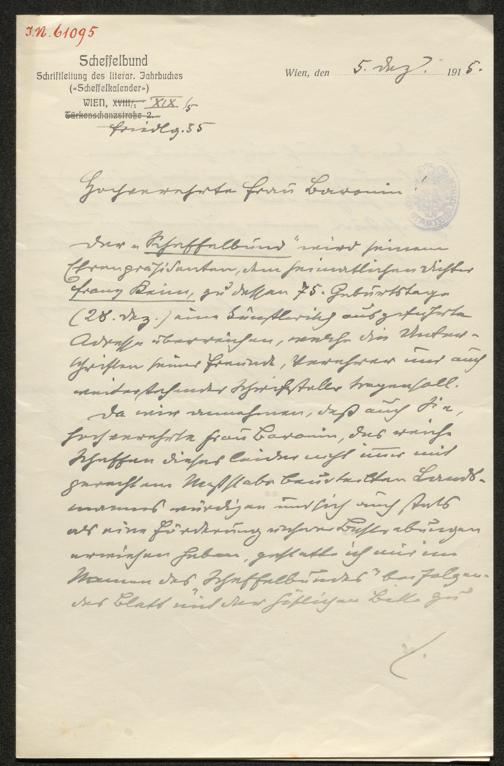 I.N. 61095
Scheffelbund
Schriftleitung des literar. Jahrbuches
(«Scheffelkalender»)
WIEN, XVIII/1 XIX/5
Türkenschanzstraße 2.
Friedlg. 55
Wien, den 5. Dez. 1915.
Hochverehrte Frau Baronin!
Der „Scheffelbund" wird seinem
Ehrenpräsidenten, dem heimatlichen Dichter
Franz Keim, zu dessen 75. Geburtstage
(28. Dez.) eine künstlerisch ausgeführte
Adresse überreichen, welche die Unter-
schriften seiner Freunde, Verehrer und auch
weiterstehender Schriftsteller tragen soll.
Da wir annehmen, daß auch Sie,
hochverehrte Frau Baronin, das reiche
Schaffen dieses leider nicht immer mit
gerechtem Maßstabe beurteilten Lands-
mannes würdigen und sich auch stets
als eine Förderung unserer Bestrebungen
erwiesen haben, gestatte ich mir im
Namen des „Scheffelbundes" beifolgen-
des Blatt mit der höflichen Bitte zu